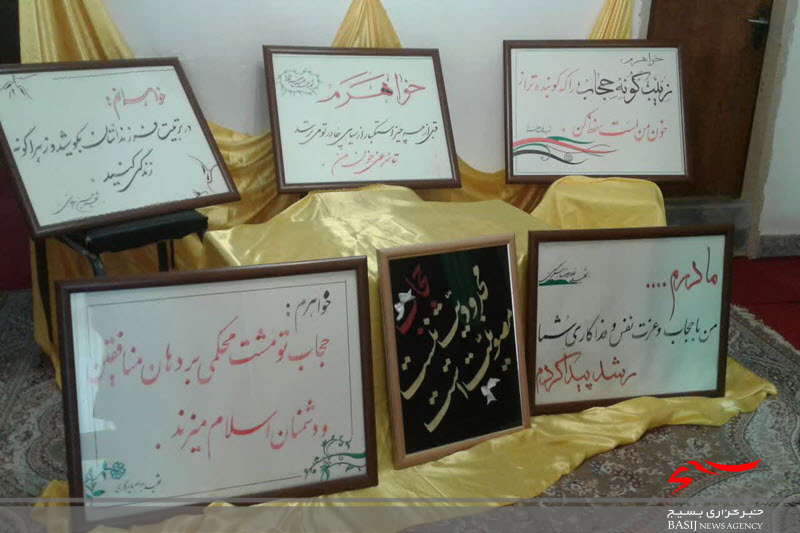 خواهرم :
زینت گونه حجاب را که کوبنده تر از
خون من است حفظ کن .
خواهرم
قبل از هر چیز استکبار از سیاهی چادر تو می‌ترسد
تا سرخی خون من .
خواهرانم :
در تربیت فرزندانتان بکوشید و زهرا گونه
زندگی کنید .
مادرم ....
من با حجاب و عزت نفس و فداکاری شما
رشد پیدا کردم
حجاب
محدودیت نیست
مصونیت است
خواهرم :
حجاب تو مشت محکمی بر دهان منافقین
و دشمنان اسلام میزند .
خبرگزاری بسیج
BASIJ NEWS AGENCY